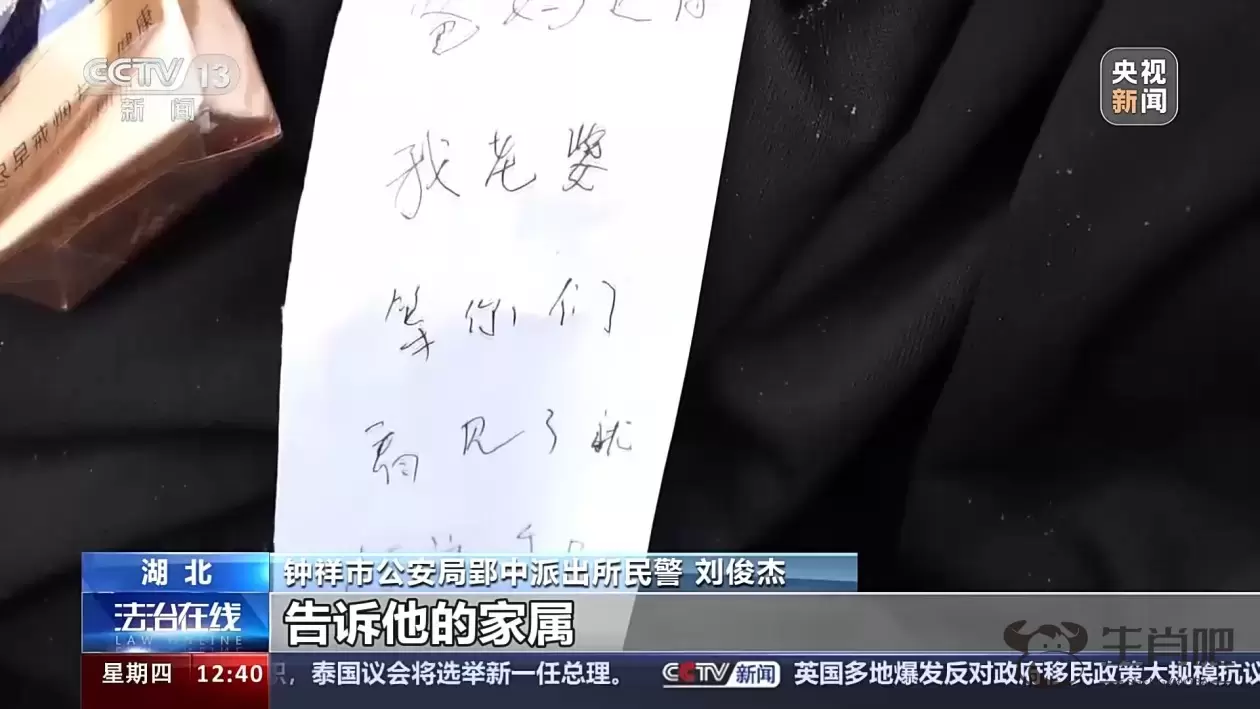 健康
尽早戒烟
CCTV 13
新闻
央视
新闻
爸妈
我老婆
等你们
看见了就
湖北
钟祥市公安局郢中派出所民警 刘俊杰
法治在线
LAW ONLINE
告诉他的家属
星期四 12:40
，泰国议会将选举新一任总理。 CCTV 新闻 英国多地爆发反对政府移民政策大规模抗议
牛肖吧